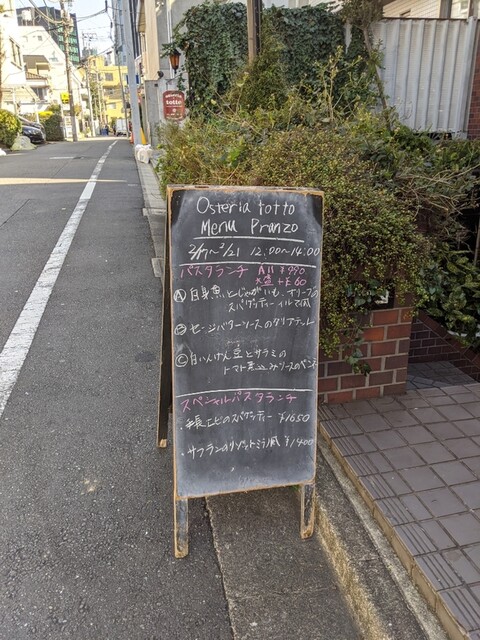 Osteria totto
Menu Pranzo
2/17~2/21 12:00~14:00
パスタランチ All ¥990
大盛 +¥60
Ⓐ 白身魚とじゃがいも、オリーブの
スパゲッティー
Ⓑ セージバターソースのタリアテッレ
Ⓒ 白いんげん豆とサラミの
トマト煮込みソースのペンネ
スペシャルパスタランチ
・手長エビのスパゲッティー ¥1650
・サフランのリゾットミラノ風 ¥1400
totto